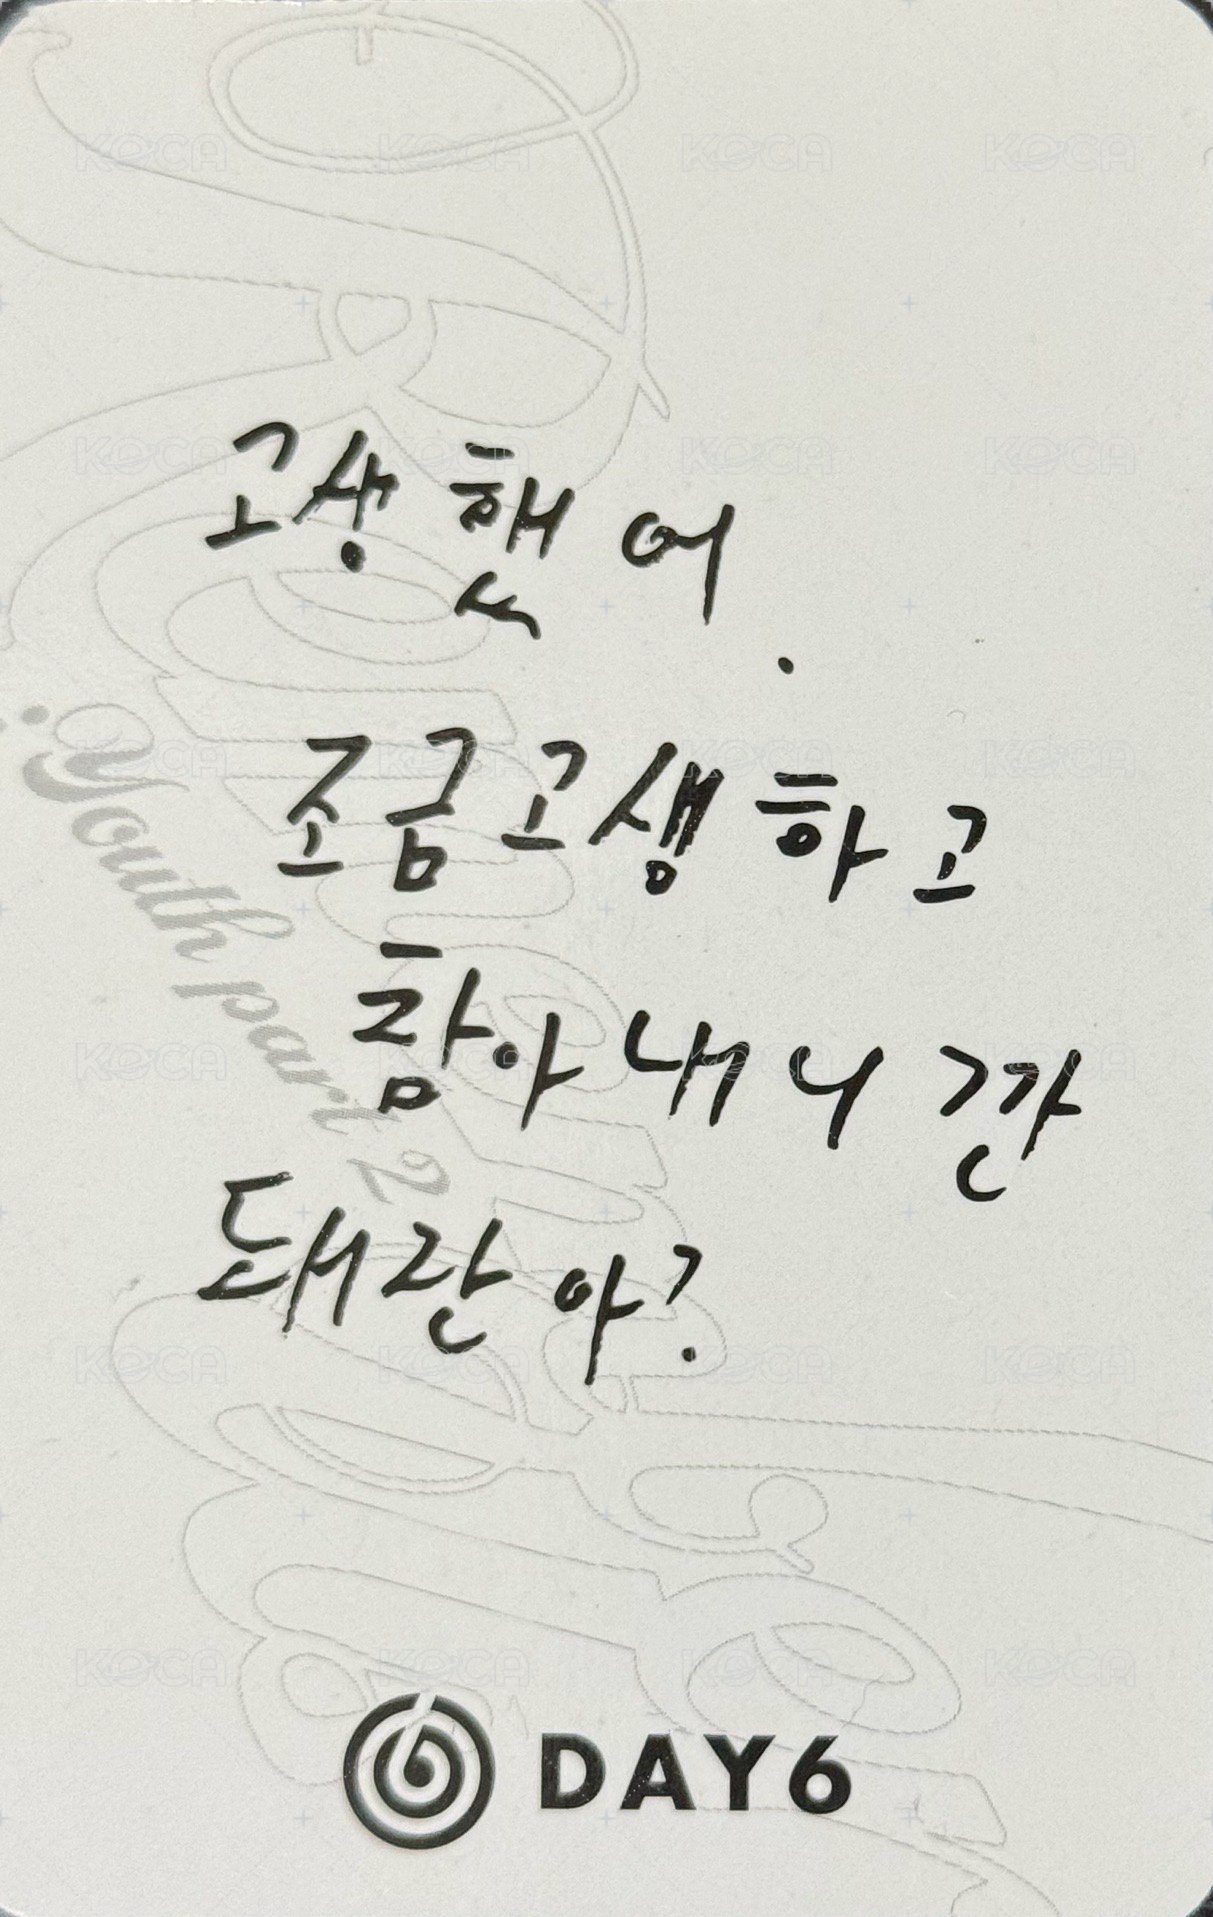 고생했어.
조금 고생하고
참아내니깐
돼잖아?
Youth part 2
DAY6
KOCA